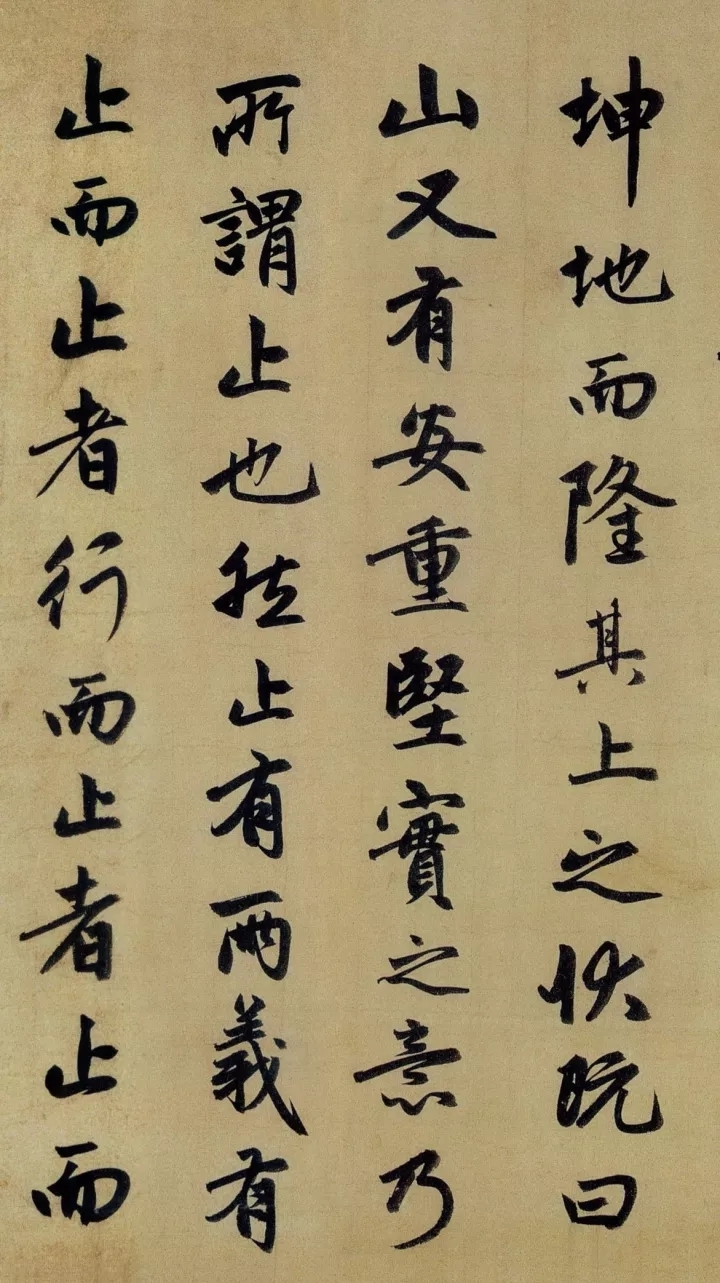 坤地而隆其上之狀既曰
山又有安重堅實之意乃
所謂止也然止有兩義有
止而止者行而止者止而